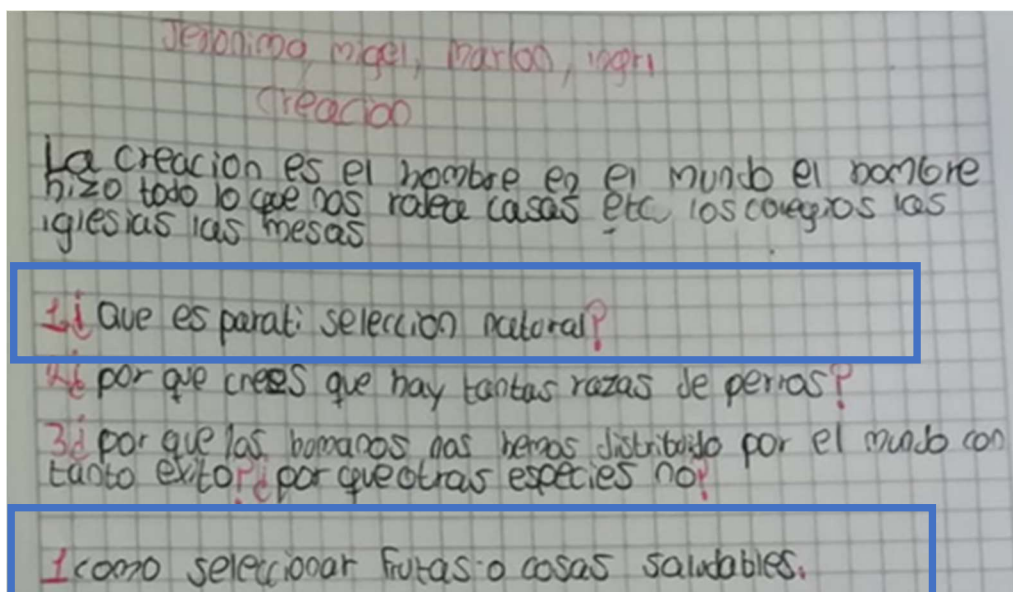 Jeronimo, migel, marlon, ingri
creacion
La creacion es el hombre en el mundo el hombre
hizo todo lo que nos rodea casas etc los colegios las
iglesias las mesas
1¿ que es para ti seleccion natural?
2¿ por que crees que hay tantas razas de perros?
3¿ por que los homanos nos hemos distribuido por el mundo con
tanto exito? ¿por que otras especies no?
1 como seleccionar frutas o cosas saludables.